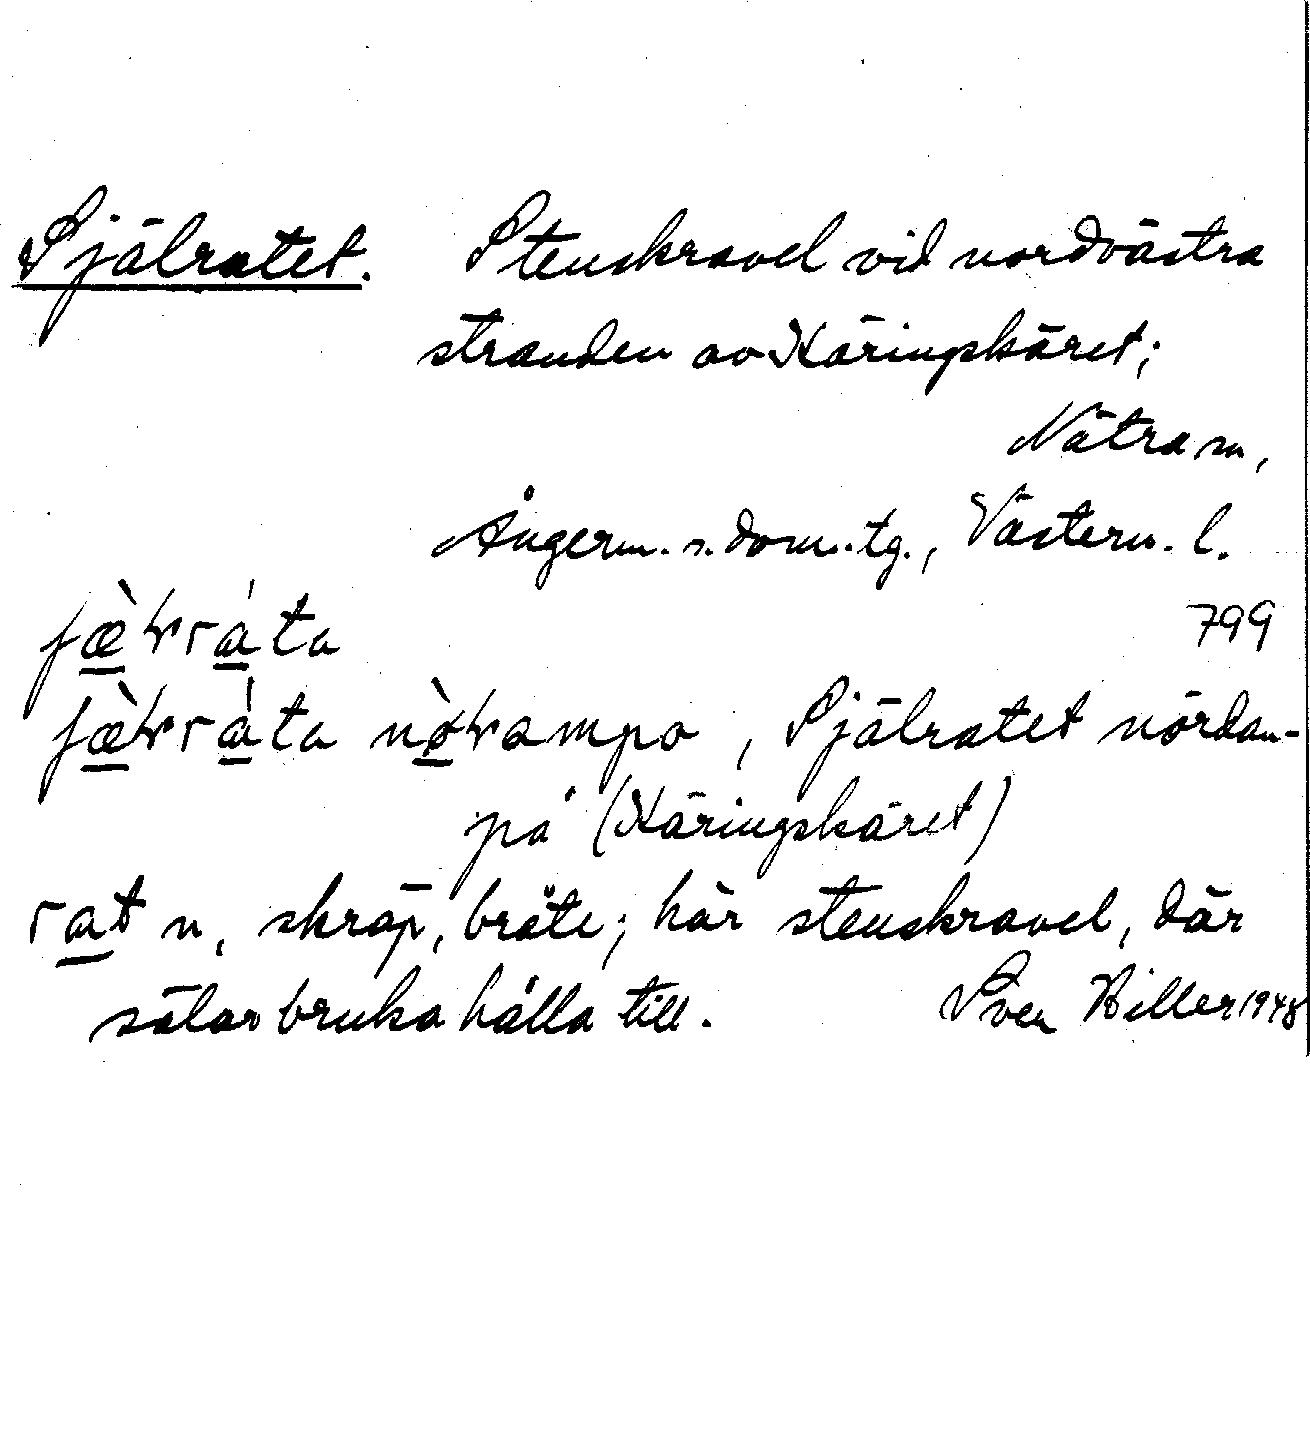 Själratet. Stenskravel vid nordvästra
stranden av Käringskäret;
Nätra sn,
Ångerm. s. dom. tg., Västern. l.
799
, Själratet nördan-
på (Käringskäret)
rat n, skräp, bråte; här stenskravel, där
sälar bruka hålla till. Sven Hiller 1948